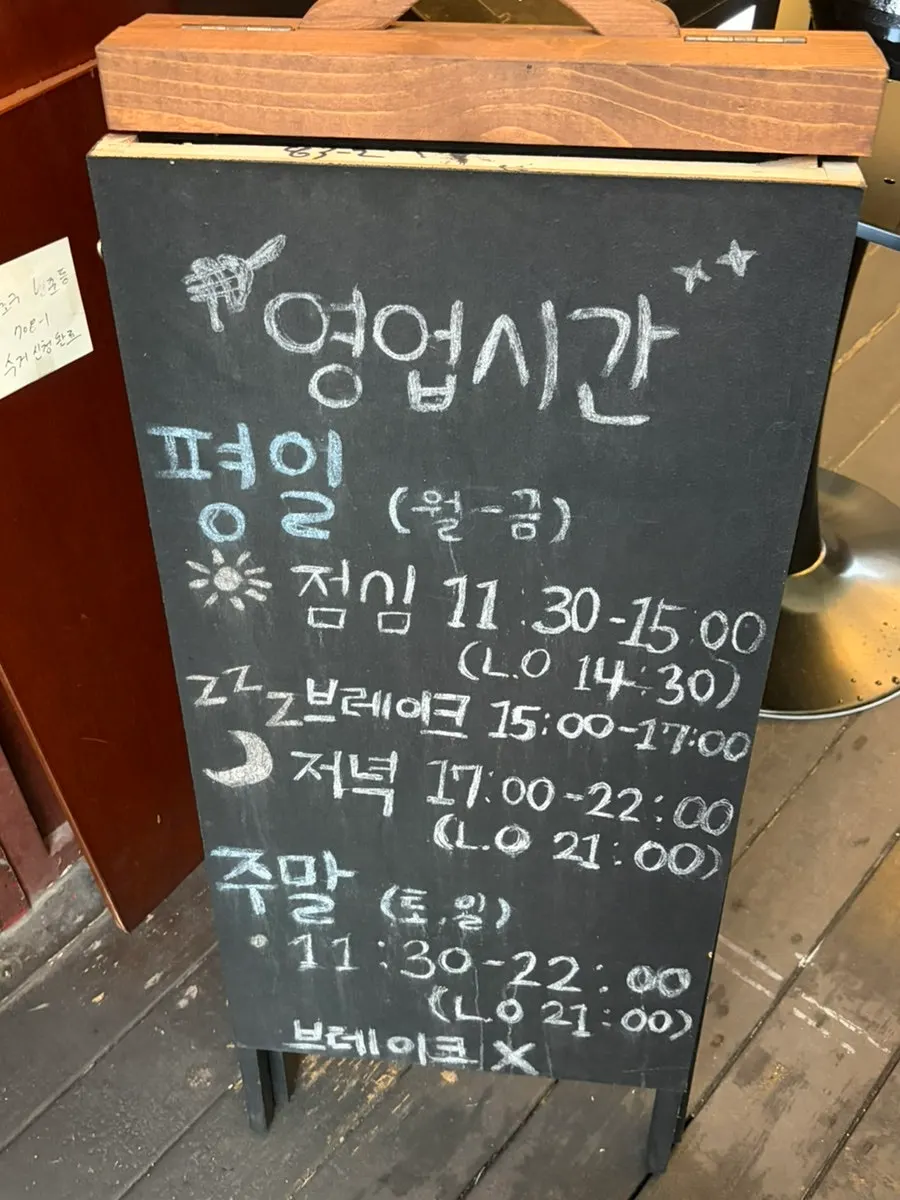 영업시간
평일 (월-금)
점심 11:30-15:00
(L.O 14:30)
zzz브레이크 15:00-17:00
저녁 17:00-22:00
(L.O 21:00)
주말 (토,일)
11:30-22:00
(L.O 21:00)
브레이크 X
708-1
수거 신청 완료